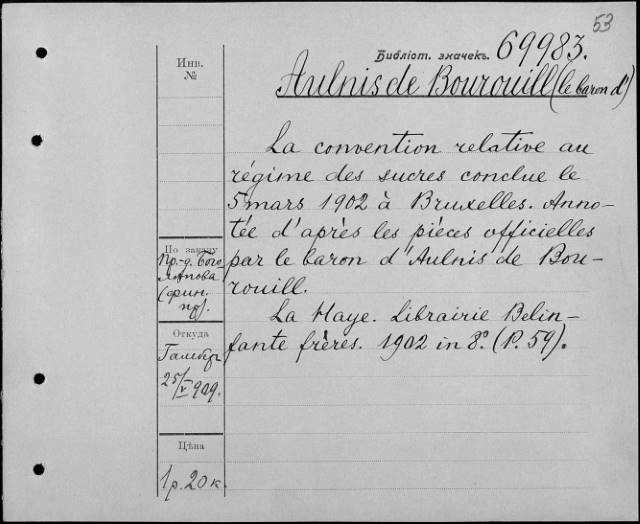 53
Библіот. значекъ. 69983.
Инв.
№
Aulnis de Bourouill (le baron d')
La convention relative au
régime des sucres conclue le
5 mars 1902 à Bruxelles. Anno-
tée d'après les pièces officielles
par le baron d'Aulnis de Bou-
rouill.
La Haye. Librairie Belin-
fante frères. 1902 in 8º. (P. 59).
По заказу
Пр.-д. Бого
лѣпова
(фин.
пр).
Откуда
25/V 909.
Цѣна
1 р. 20 к.